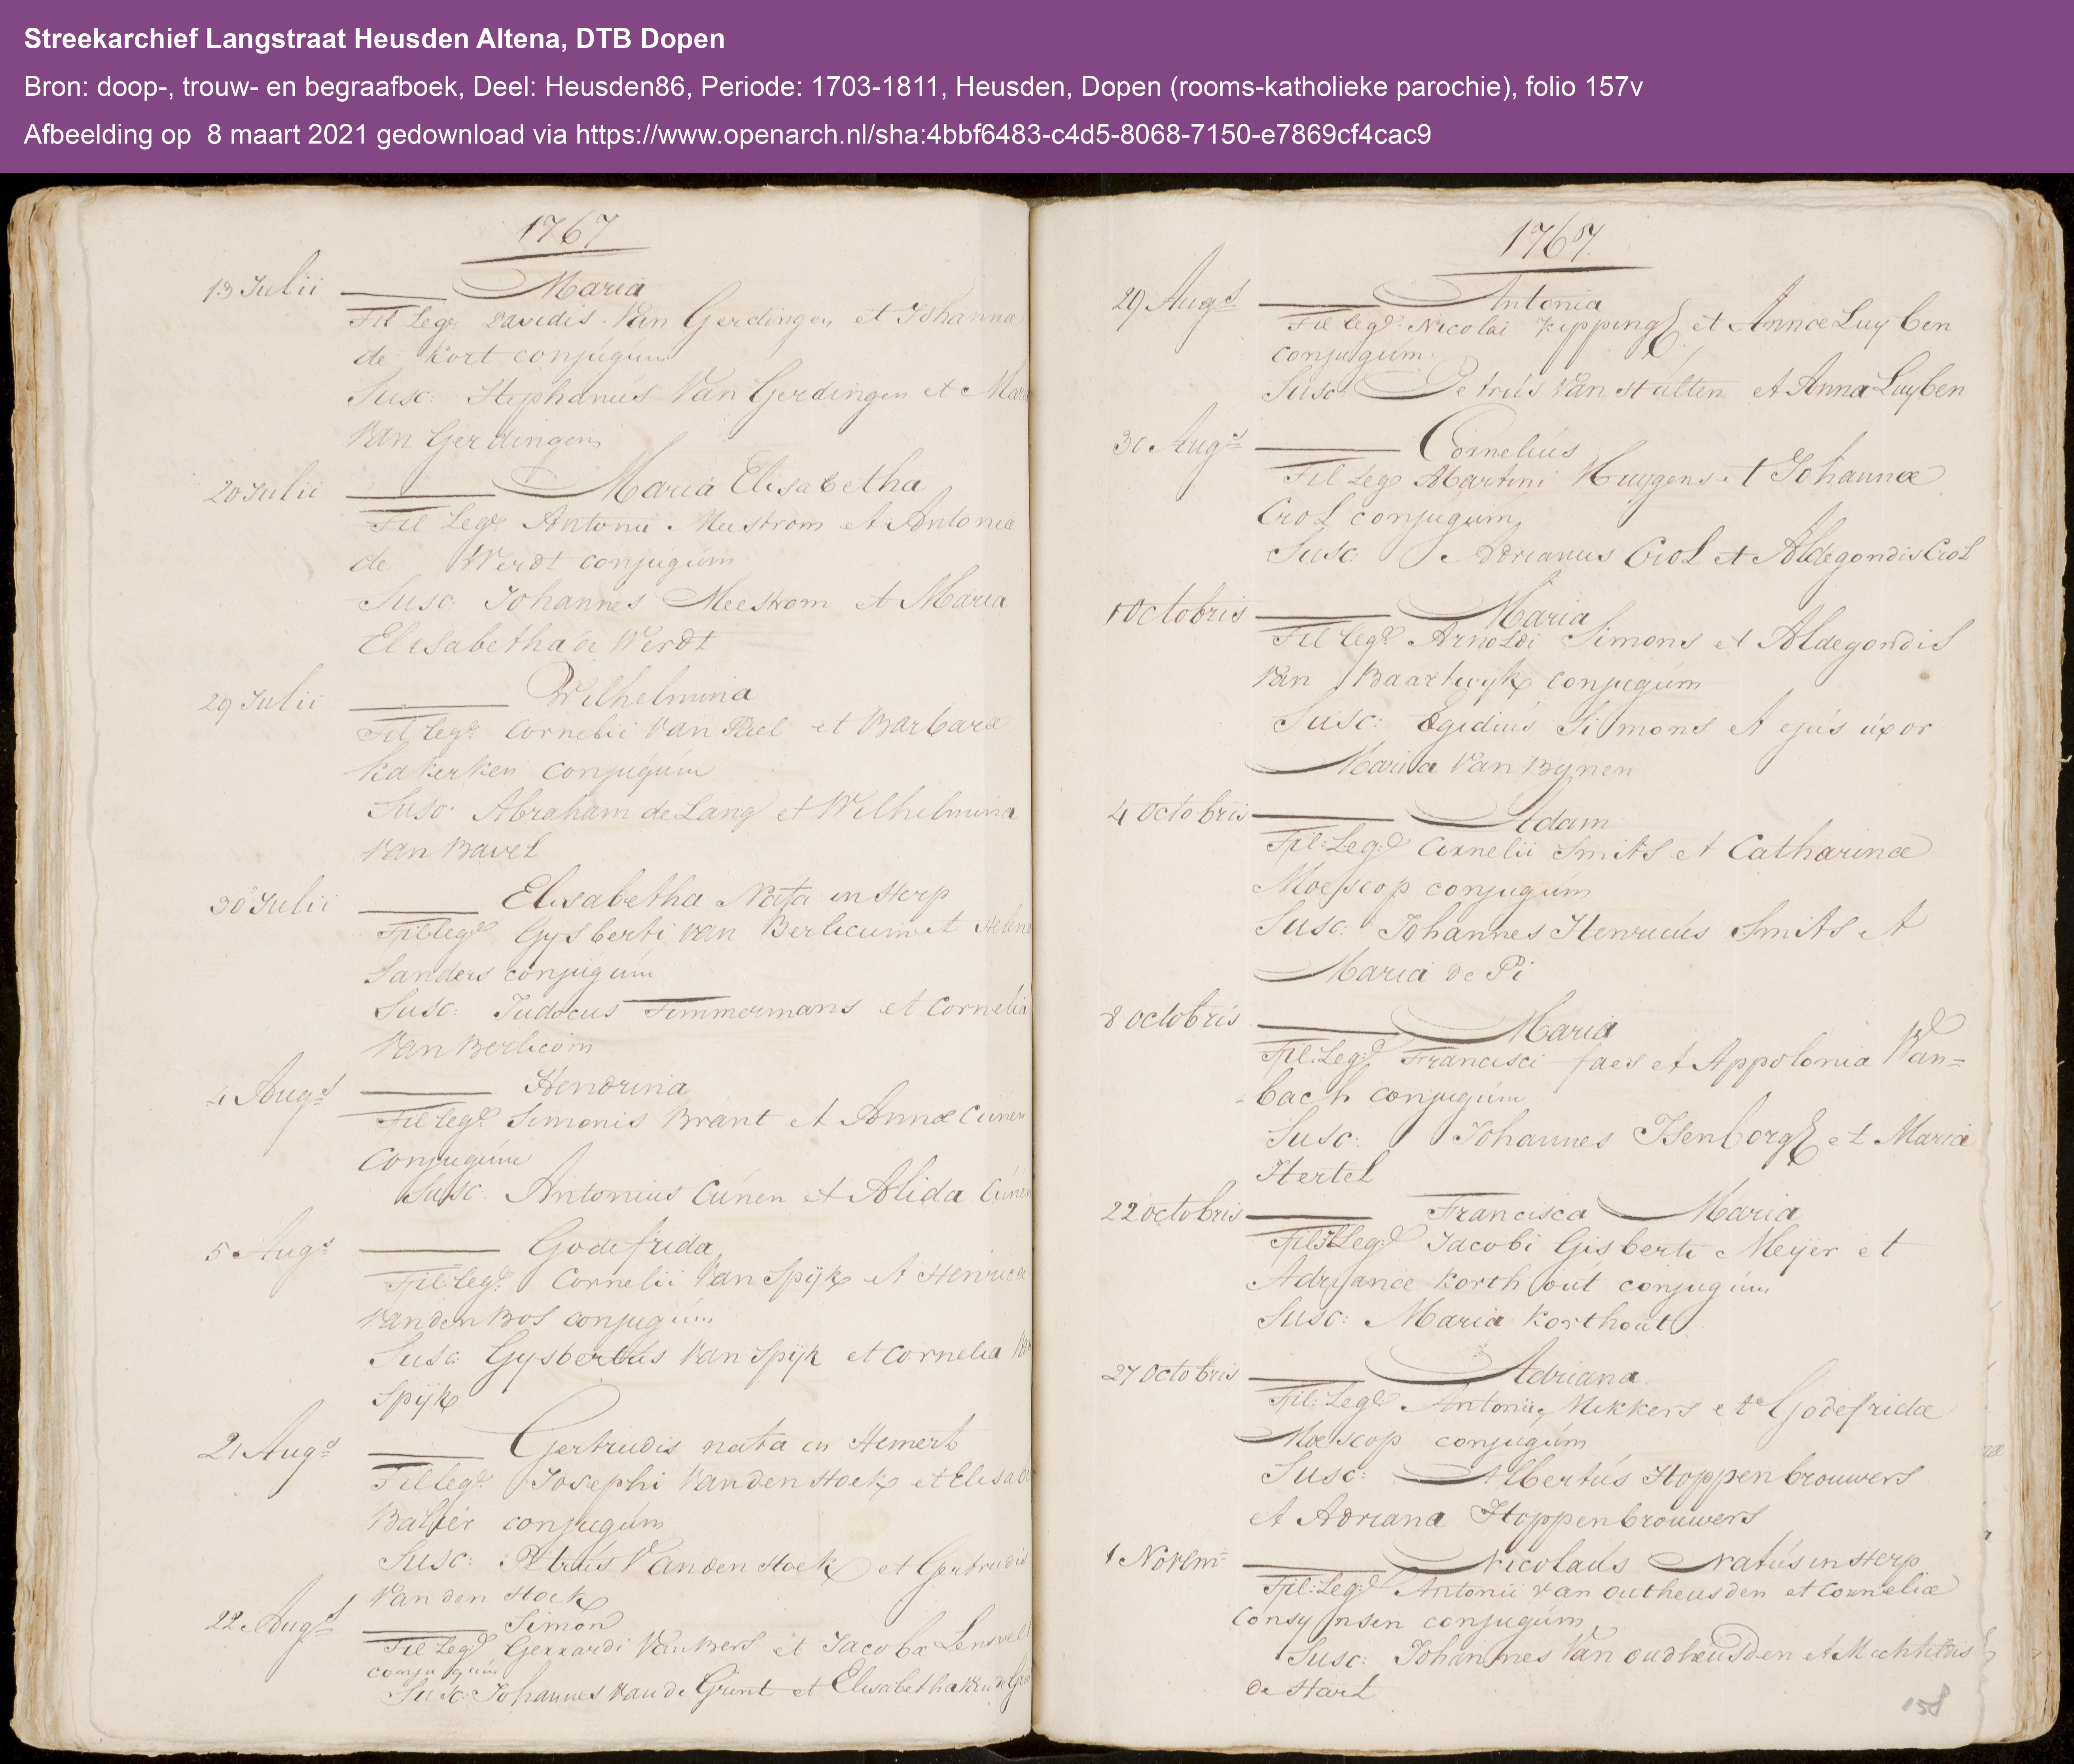 Streekarchief Langstraat Heusden Altena, DTB Dopen
Bron: doop-, trouw- en begraafboek, Deel: Heusden86, Periode: 1703-1811, Heusden, Dopen (rooms-katholieke parochie), folio 157v
Afbeelding op 8 maart 2021 gedownload via https://www.openarch.nl/sha:4bbf6483-c4d5-8068-7150-e7869cf4cac9
1767
13 Julii Maria
Fil Leg: Davidis Van Gerdingen et Johanna
de Kort conjugúm
Susc: Stephanús Van Gerdingen et Maria
Van Gerdingen
20 Julii Maria Elisabetha
Fil Leg: Antonii Meestrom et Antonia
de Werdt conjugúm
Susc: Johannes Meestrom et Maria
Elisabetha de Werdt
29 Julii Wilhelmina
Fil leg: Cornelii Van Bael et Barbara
Kakerken conjugúm
Susc: Abraham de Lang et Wilhelmina
Van Bavel
30 Julii Elisabetha Nata in Herp
Fil leg: Gysberti van Berlicum et
Sanders conjugúm
Susc: Judocus Timmermans et Cornelia
Van Berlicom
4 Augs Hendrina
Fil leg: Simonis Brant et Annæ Cúnen
Conjugúm
Susc: Antonius Cúnen et Alida Cúnen
5 Augs Godefrida
Fil: leg: Cornelii Van Spijk et Henricæ
Van den Bos conjugúm
Susc: Gysbertús Van Spijk et Cornelia
Spijk
21 Augs Gertrudis nata in Hemert
Fil leg: Josephi Van den Hoek et
conjugúm
Susc: Petrús Van den Hoek et Gertrudis
Van den Hoek
22 Augs Simon
Fil Leg: Gerrardi Van Bers et Jacobæ
conjugúm
Susc: Johannes Van de Grint et Elisabetha
1767.
29 Augs Antonia
Fil leg: Nicolai Kipping et Annæ Luyben
conjugúm
Susc: Petrús Van Hulten et Anna Luyben
30 Augs Corneliús
Fil Leg: Martini Huygens et Johannæ
Crol conjugúm
Susc: Adrianus Crol et Aldegondis Crol
1 Octobris Maria
Fil leg: Arnoldi Simons et Aldegondis
Van Baartwyk conjugúm
Susc: Egidiús Simons et ejús úxor
Maria Van Bynen
4 Octobris Adam
Fil: Leg: Cornelii Smits et Catharinæ
Moescop conjugúm
Susc: Johannes Henricús Smits et
Maria de Pi
8 Octobris Maria
Fil: Leg: Francisci faes et Appolonia Van=
bach conjugúm
Susc: Johannes Isenborg et Maria
Hertel
22 octobris Francisca Maria
Fil: Leg: Jacobi Gisberti Meyer et
Adryanæ Korthoút conjugúm
Susc: Maria Korthout
27 Octobris Adriana
Fil: Leg: Antonii Mikkers et Godefridæ
Moescop conjugúm
Susc: Albertús Hoppenbrouwers
et Adriana Hoppenbrouwers
1 Novem= Nicolaús Natús in Herp
Fil: Leg: Antonii van outheusden et Corneliæ
conjugúm
Susc: Johannes Van oudheusden et Mechteldis
de Hart
158